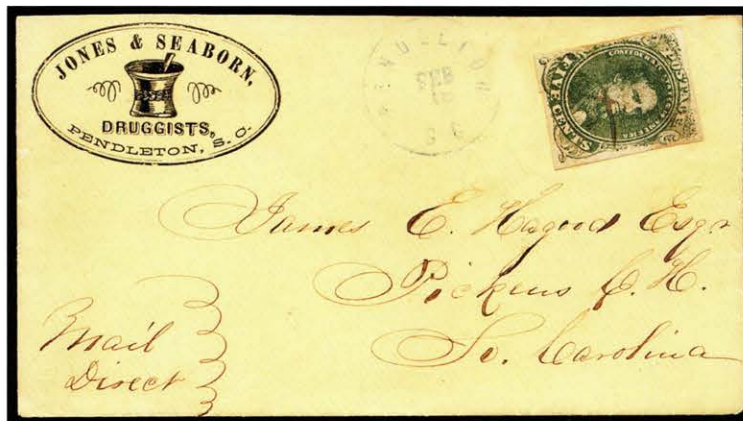 JONES & SEABORN,
DRUGGISTS,
PENDLETON, S. C.
PENDLETON
FEB
S C
CONFEDERATE STATES OF AMERICA
POSTAGE
James E. Hagood Esqr
Pickens C. H.
So. Carolina
Mail
Direct